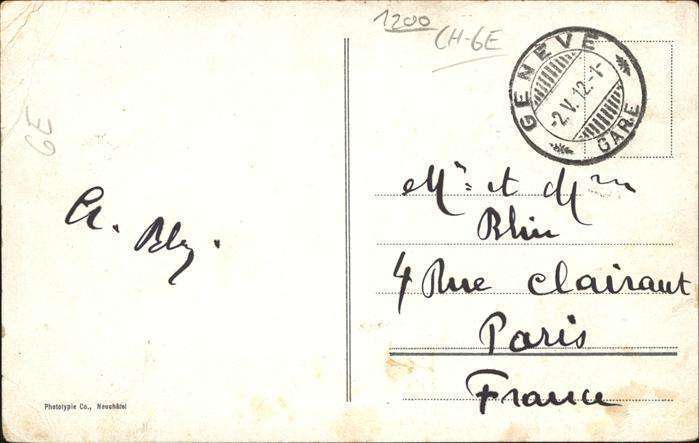 1200
CH-GE
GENÈVE
-2.V.12.-1-
GARE
GE
Mr. et Mme
Blin
4 Rue Clairaut
Paris
France
Phototypie Co., Neuchâtel